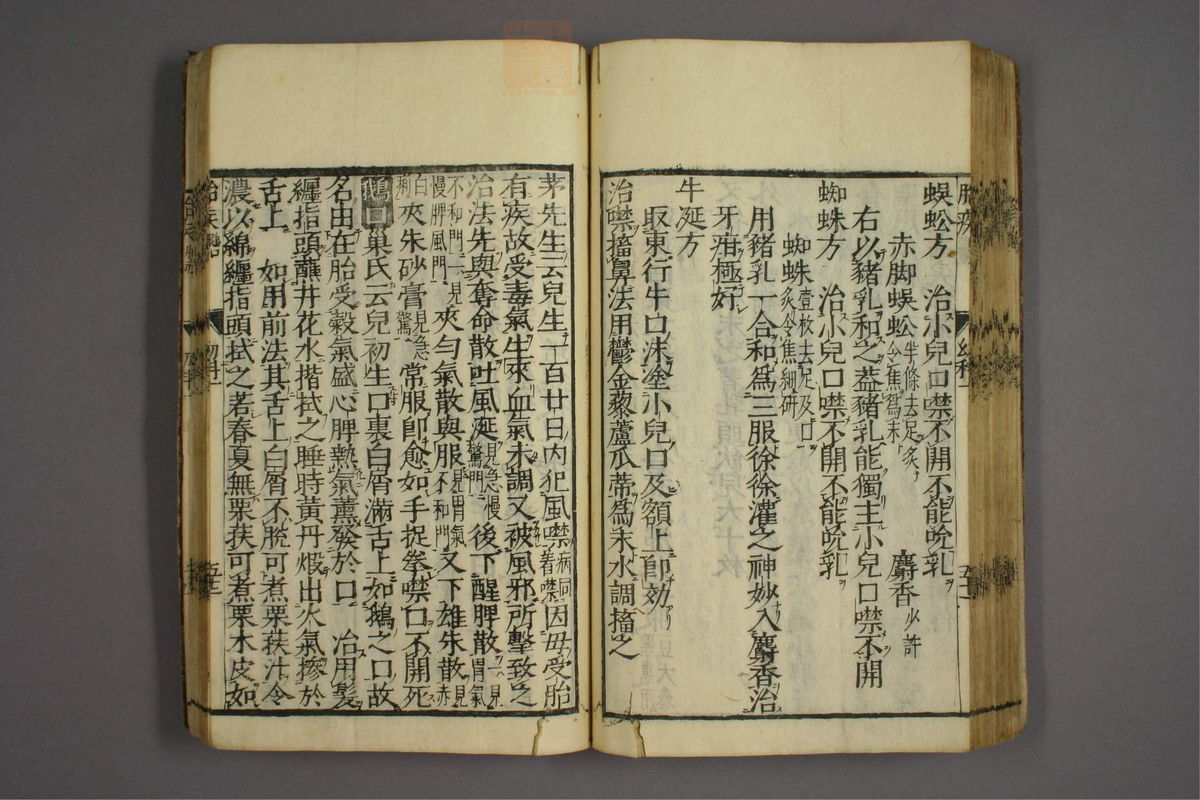 蜈蚣方　治小兒口噤不開不能吮乳
赤脚蜈蚣半條去足炙令焦爲末　麝香少許
右以豬乳和之葢豬乳能獨主小兒口噤不開
蜘蛛方　治小兒口噤不開不能吮乳
蜘蛛壹枚去足及口炙令焦細研
用豬乳一合和爲三服徐徐灌之神妙入麝香治
牙疳極好
牛延方
取東行牛口沫塗小兒口及額上即効
治噤搐鼻法用鬱金藜蘆瓜蒂爲末水調搐之
茅先生云兒生一百廿日內犯風噤病同着噤因母受胎
有疾故受毒氣生來血氣未調又被風邪所擊致之
治法先與奪命散吐風涎見急慢驚門後下醒脾散一見胃氣
不和門二見慢脾風門夾勻氣散與服見胃氣不和門又下雄朱散見赤
白痢夾朱砂膏見急驚常服即愈如手捉拳噤口不開死
鵝口　巢氏云兒初生口裏白屑滿舌上如鵝之口故
名由在胎受穀氣盛心脾熱氣薰發於口　治用髮
纏指頭蘸井花水揩拭之睡時黃丹煅出火氣摻於
舌上　如用前法其舌上白屑不脫可煮栗荴汁令
濃以綿纏指頭拭之若春夏無栗荴可煮栗木皮如